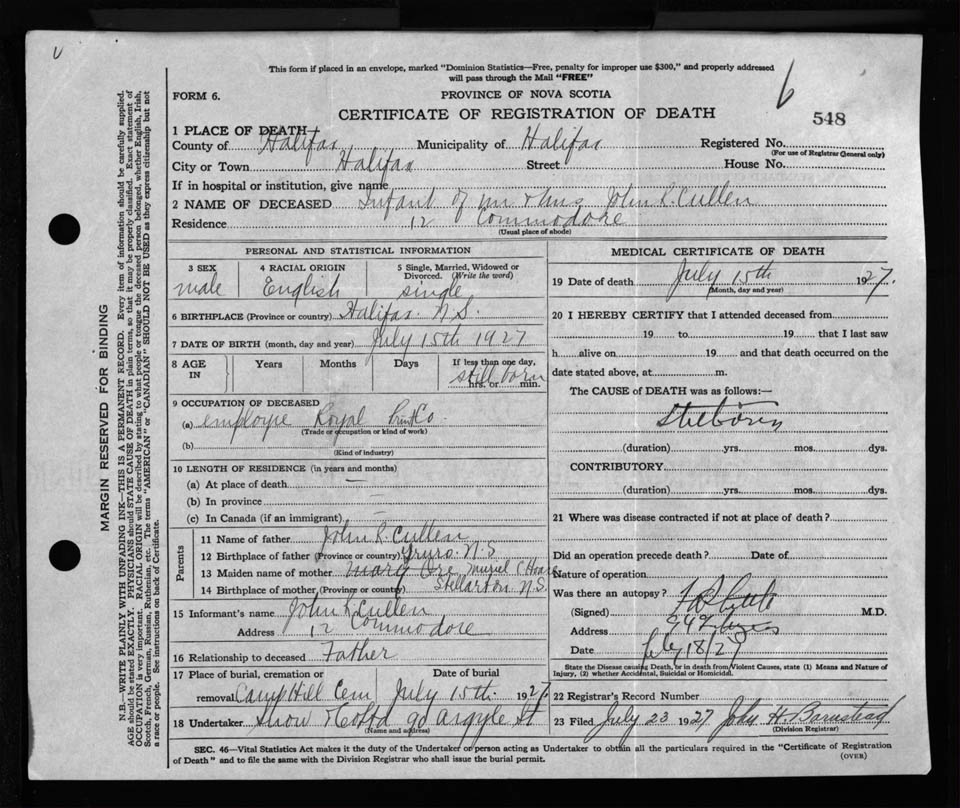 This form if placed in an envelope, marked "Dominion Statistics—Free, penalty for improper use $300," and properly addressed
will pass through the Mail "FREE"
6
FORM 6.
PROVINCE OF NOVA SCOTIA
CERTIFICATE OF REGISTRATION OF DEATH
548
1 PLACE OF DEATH
County of Halifax Municipality of Halifax Registered No.
(For use of Registrar General only)
City or Town Halifax Street House No.
If in hospital or institution, give name
2 NAME OF DECEASED Infant of Mr & Mrs John R. Cullen
Residence 12 Commodore
(Usual place of abode)
PERSONAL AND STATISTICAL INFORMATION
3 SEX 4 RACIAL ORIGIN 5 Single, Married, Widowed or
Divorced. (Write the word)
male English single
6 BIRTHPLACE (Province or country) Halifax N.S.
7 DATE OF BIRTH (month, day and year) July 15th 1927
8 AGE IN Years Months Days If less than one day,
stillborn
hrs. or min.
9 OCCUPATION OF DECEASED
(a) employee Royal Print Co.
(Trade or occupation or kind of work)
(b)
(Kind of industry)
10 LENGTH OF RESIDENCE (in years and months)
(a) At place of death —
(b) In province —
(c) In Canada (if an immigrant)
Parents
11 Name of father John R. Cullen
12 Birthplace of father (Province or country) Truro. N.S
13 Maiden name of mother Mary Muriel C Hoare
14 Birthplace of mother (Province or country) Stellarton N.S.
15 Informant's name John R Cullen
Address 12 Commodore
16 Relationship to deceased Father
17 Place of burial, cremation or Date of burial
removal Camp Hill Cem July 15th 1927
18 Undertaker Snow & Co Ltd 90 Argyle St
(Name and address)
MEDICAL CERTIFICATE OF DEATH
19 Date of death July 15th 1927.
(Month, day and year)
20 I HEREBY CERTIFY that I attended deceased from
19 to 19 that I last saw
h alive on 19 and that death occurred on the
date stated above, at m.
The CAUSE of DEATH was as follows:—
Stillborn
(duration) yrs. mos. dys.
CONTRIBUTORY
(duration) yrs. mos. dys.
21 Where was disease contracted if not at place of death?
Did an operation precede death? Date of
Nature of operation
Was there an autopsy?
(Signed) M.D.
Address
Date July 18/27
State the Disease causing Death, or in death from Violent Causes, state (1) Means and Nature of
Injury, (2) whether Accidental, Suicidal or Homicidal.
22 Registrar's Record Number
23 Filed July 23 1927 John H. Barnstead
(Division Registrar)
SEC. 46—Vital Statistics Act makes it the duty of the Undertaker or person acting as Undertaker to obtain all the particulars required in the "Certificate of Registration
of Death" and to file the same with the Division Registrar who shall issue the burial permit.
(OVER)
MARGIN RESERVED FOR BINDING
N.B.—WRITE PLAINLY WITH UNFADING INK—THIS IS A PERMANENT RECORD. Every item of information should be carefully supplied.
AGE should be stated EXACTLY. PHYSICIANS should STATE CAUSE OF DEATH in plain terms, so that it may be properly classified. Exact statement of
OCCUPATION is very important. RACIAL ORIGIN will be described by stating to what people or tongue the deceased person belonged, whether English, Irish,
Scotch, French, German, Russian, Ruthenian, etc. The terms "AMERICAN" or "CANADIAN" SHOULD NOT BE USED as they express citizenship but not
a race or people. See instructions on back of Certificate.